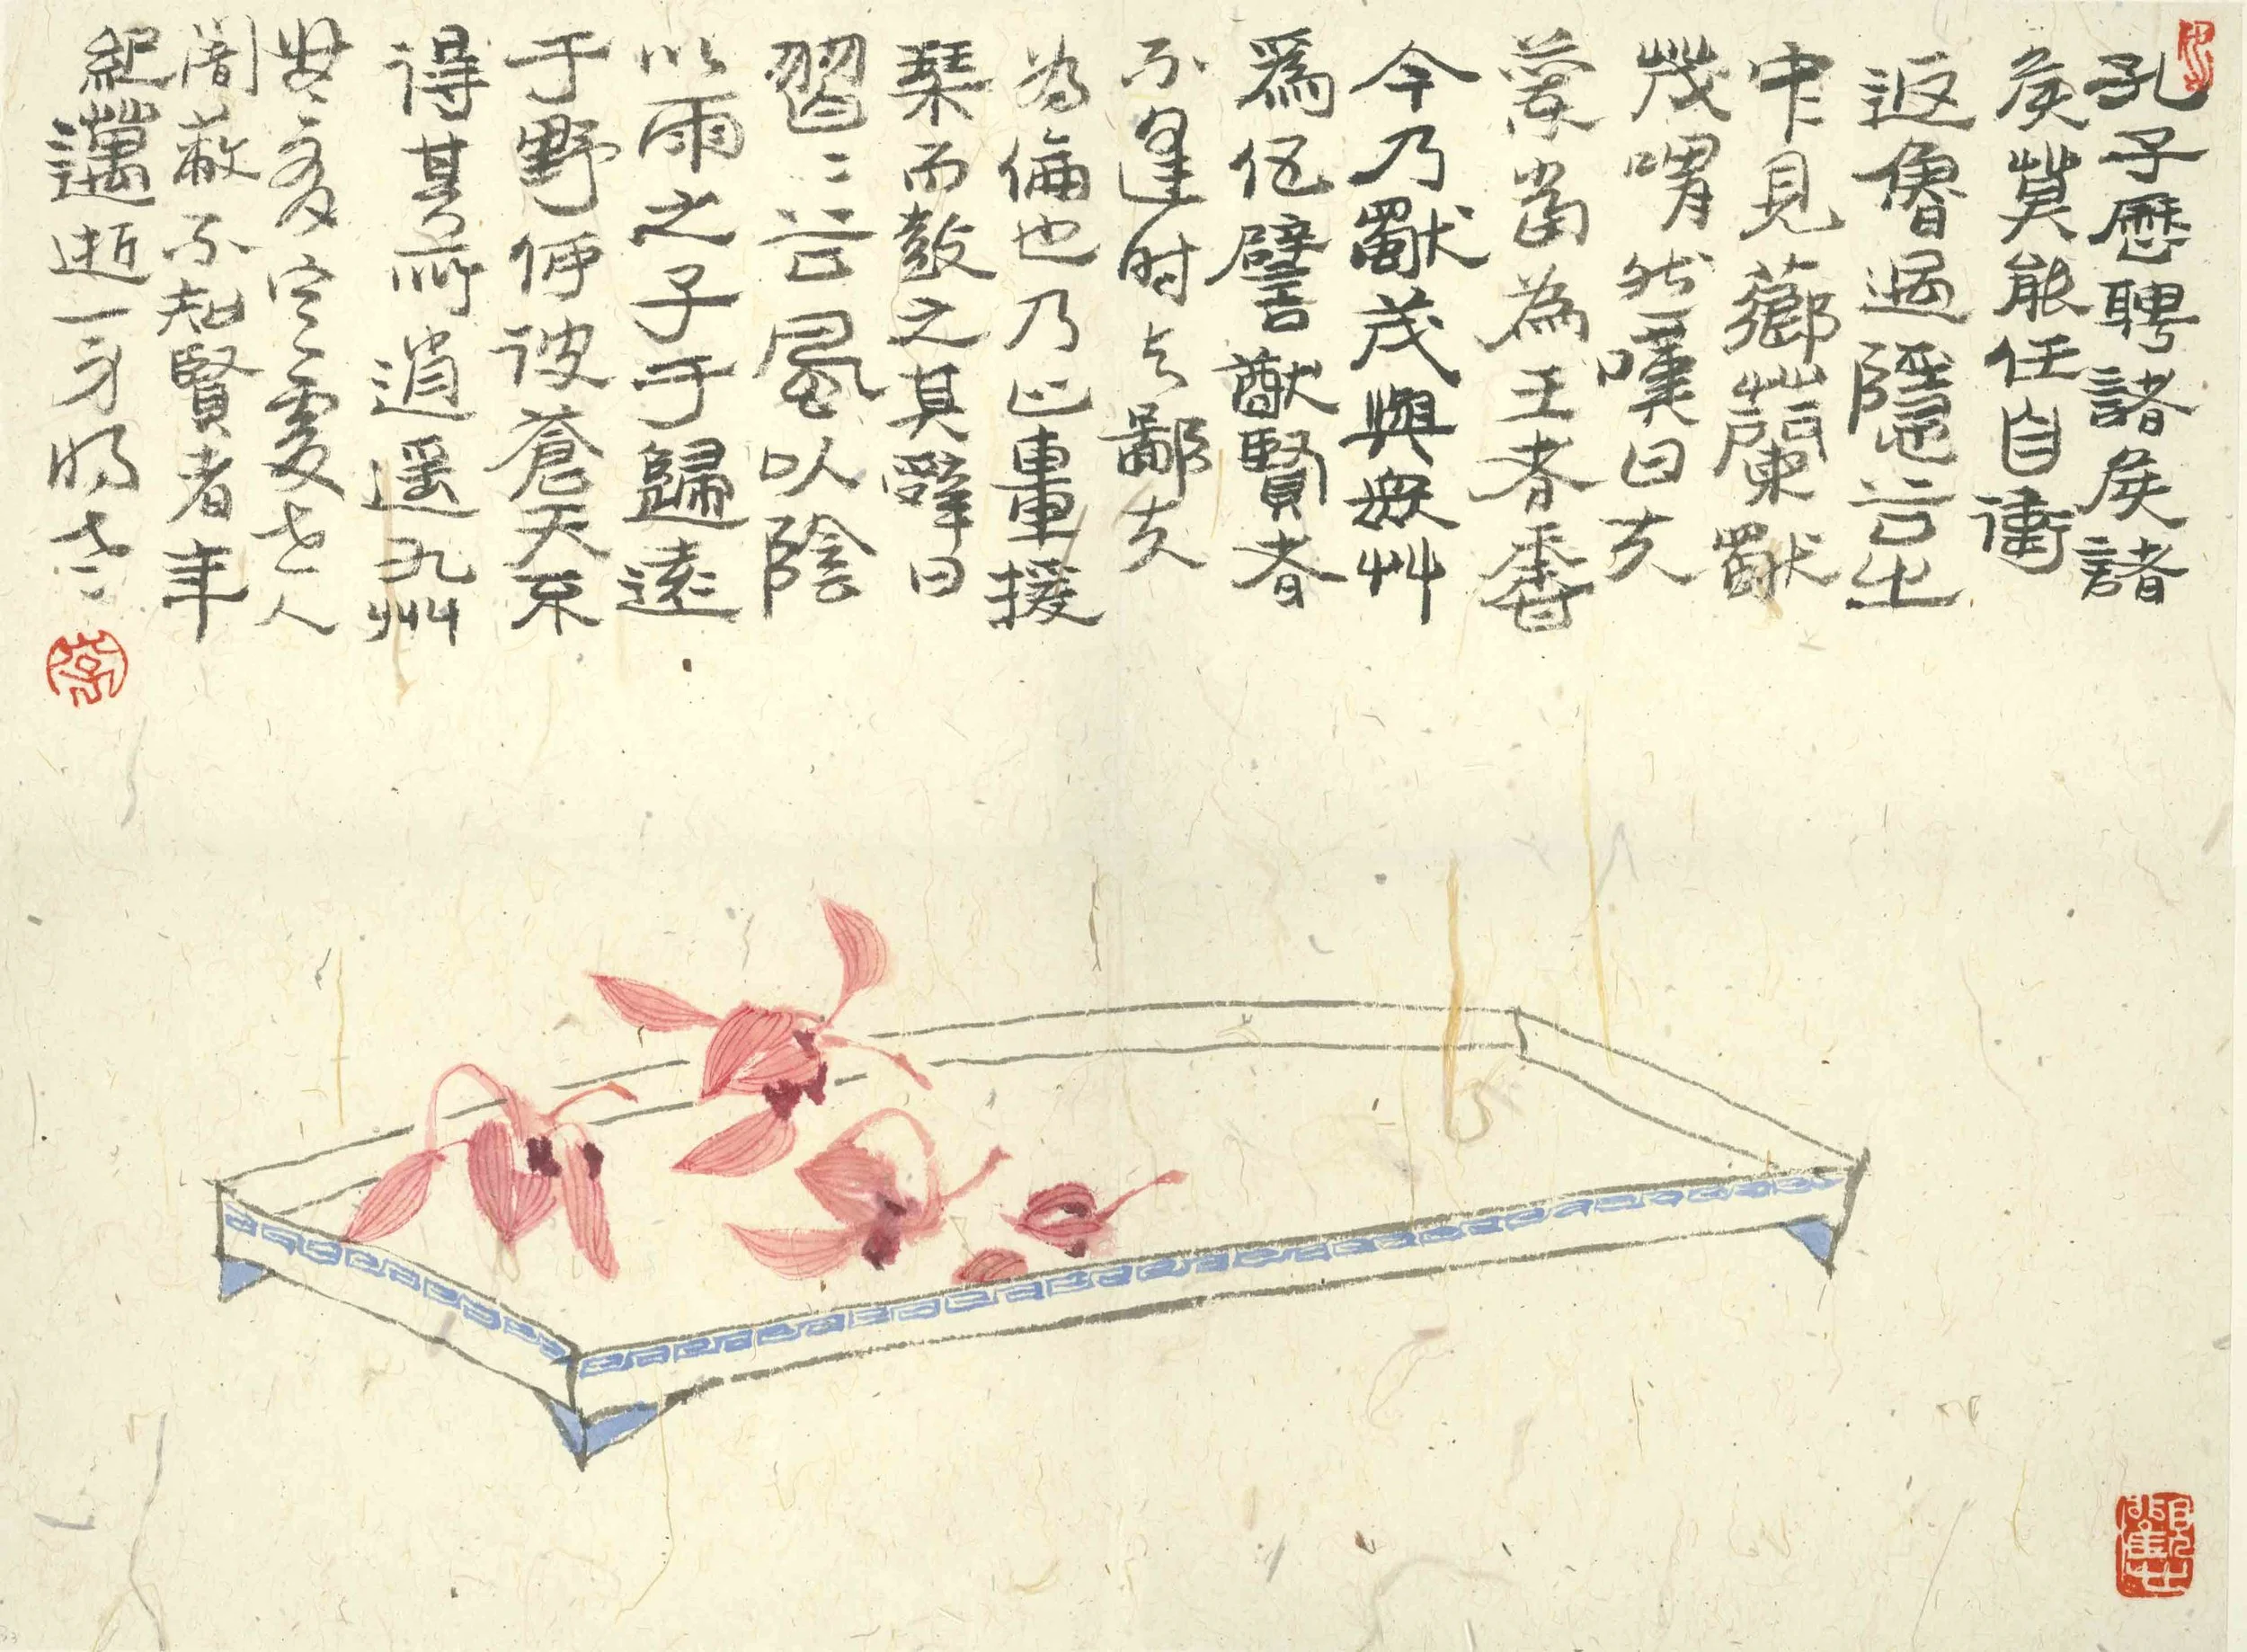 孔子歷聘諸侯諸
侯莫能任自衞
返魯過隱谷之
中見薌蘭獨
茂喟然嘆曰夫
蘭當為王者香
今乃獨茂與衆艸
爲伍譬猶賢者
不逢时与鄙夫
为倫也乃止車援
琴而鼓之其辭曰
習〻谷風以陰
以雨之子于歸遠
于野何彼蒼天不
得其所逍遥九州
無定處世人
闇蔽不知賢者年
紀邁逝一身將老